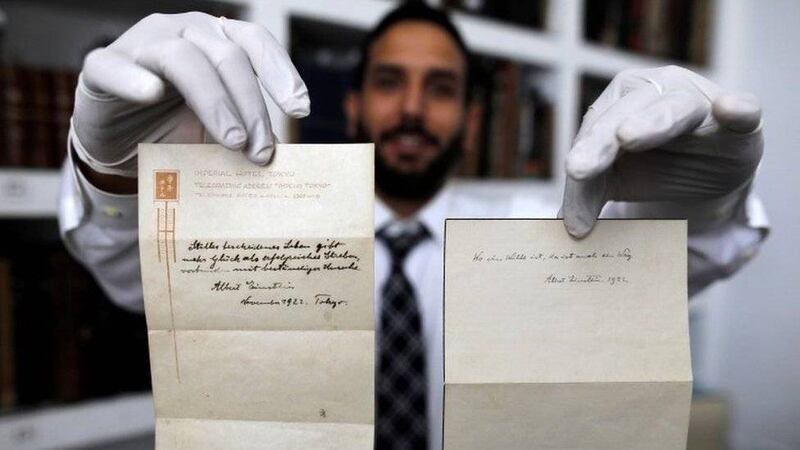 IMPERIAL HOTEL TOKYO
TELEGRAPHIC ADDRESS "IMPEHO TOKYO"
Stilles bescheidenes Leben gibt
mehr Glück als erfolgreiches Streben,
verbunden mit beständiger Unruhe.
Albert Einstein
November 1922. Tokyo.
Wo ein Wille ist, da ist auch ein Weg
Albert Einstein. 1922.